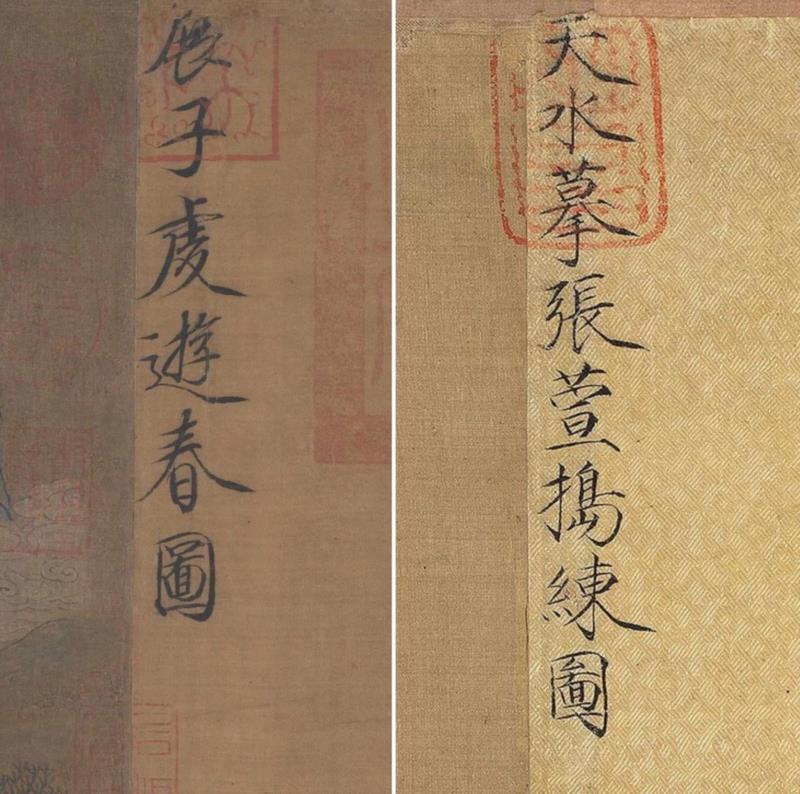 展子虔遊春圖
天水摹張萱搗練圖